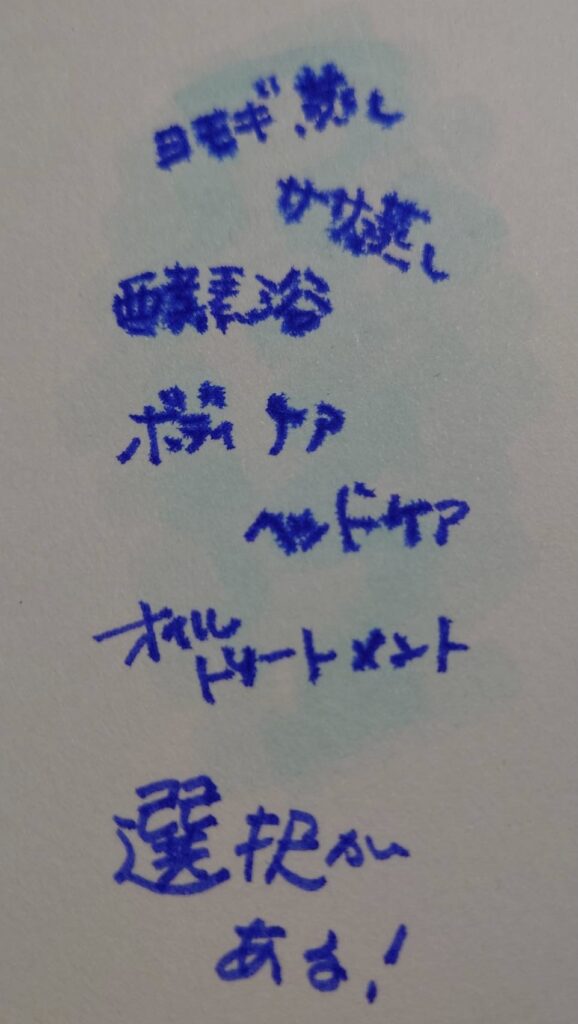 ヨモギ蒸し
ササ蒸し
酵素浴
ボディケア
ヘッドケア
オイル
トリートメント
選択が
ある!